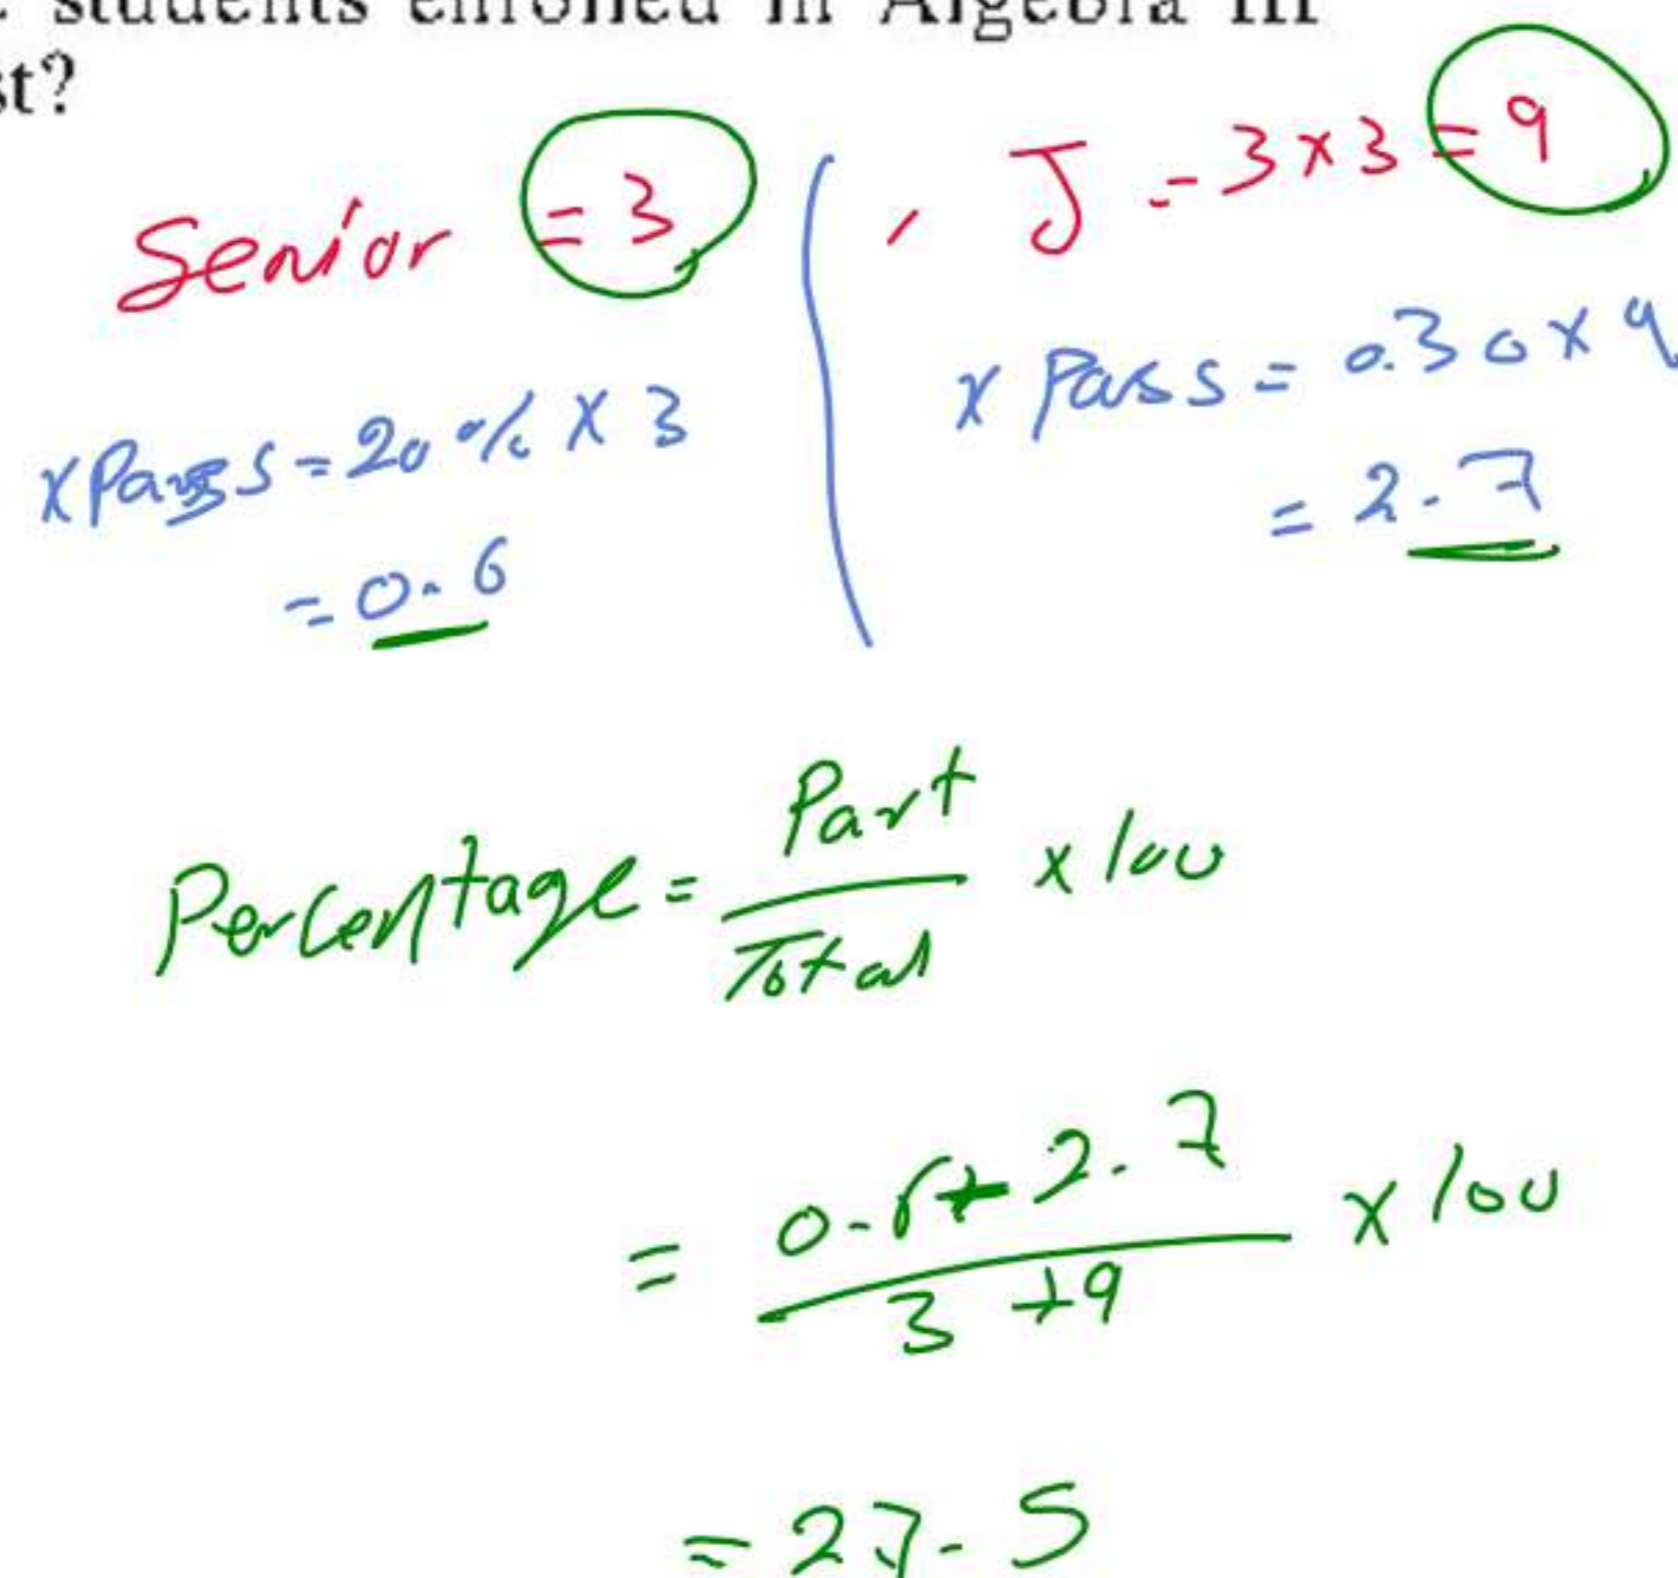 students enrolled in Algebra III
st?
Senior = 3 , J = 3 x 3 = 9
x Pass = 20% x 3
= 0.6
x Pass = 0.30 x 9
= 2.7
Percentage = Part / Total x 100
= 0.6 + 2.7 / 3 + 9 x 100
= 27.5